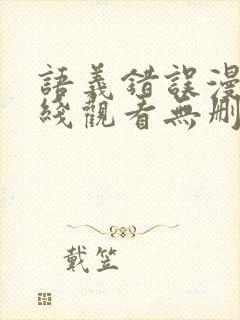 語義錯誤漫
綫觀看無刪
戴笠